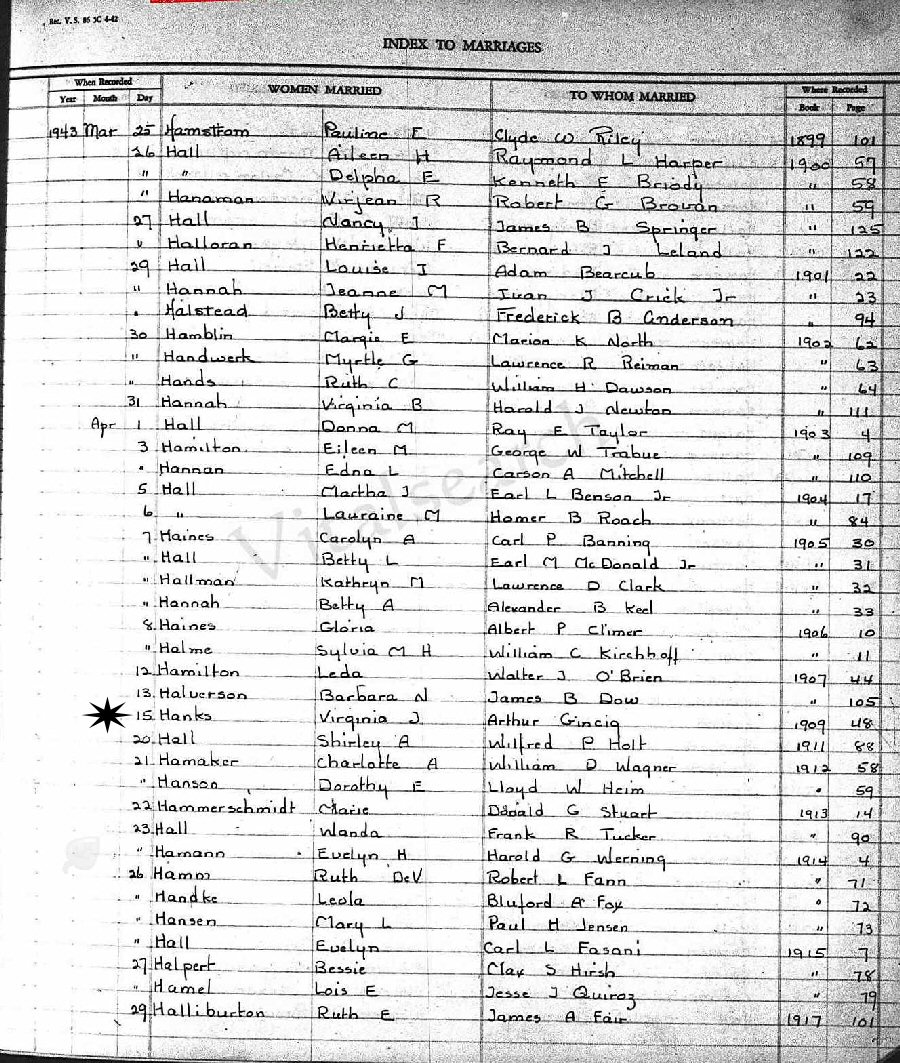 Rec. V. S. 86 3C 4-42
INDEX TO MARRIAGES
When Recorded WOMEN MARRIED TO WHOM MARRIED Where Recorded
Year Month Day Book Page
1943 Mar 25 Hamstram Pauline E Clyde W Riley 1899 101
26 Hall Aileen H Raymond L Harper 1900 57
" " Delpha E Kenneth E Briody " 58
" Hanaman Virjean R Robert G Browan " 59
27 Hall Nancy J James B Springer " 125
" Halloran Henrietta F Bernard J Leland " 122
29 Hall Louise J Adam Bearcub 1901 22
" Hannah Jeanne M Ivan J Crick Jr " 23
" Halstead Betty J Frederick B Anderson " 94
30 Hamblin Margie E Marion K North 1902 62
" Handwerk Myrtle G Lawrence R Reiman " 63
" Hands Ruth C William H Dawson " 64
31 Hannah Virginia B Harold J Newton " 111
Apr 1 Hall Donna M Ray E Taylor 1903 4
3 Hamilton Eileen M George W Trabue " 109
" Hannan Edna L Carson A Mitchell " 110
5 Hall Martha J Earl L Benson Jr 1904 17
6 " Lauraine M Homer B Roach " 84
7 Haines Carolyn A Carl P Banning 1905 30
" Hall Betty L Earl M McDonald Jr " 31
" Hallman Kathryn M Lawrence D Clark " 32
" Hannah Betty A Alexander B Keel " 33
8 Haines Gloria Albert P Climer 1906 10
" Halme Sylvia M H William C Kirchhoff " 11
12 Hamilton Leda Walter J O'Brien 1907 44
13 Halverson Barbara N James B Dow " 105
15 Hanks Virginia J Arthur Gincig 1909 48
20 Hall Shirley A Wilfred P Holt 1911 88
21 Hamaker Charlotte A William D Wagner 1912 58
" Hanson Dorothy E Lloyd W Heim " 59
22 Hammerschmidt Marie Donald G Stuart 1913 14
23 Hall Wanda Frank R Tucker " 90
" Hamann Evelyn H Harold G Werning 1914 4
26 Hamm Ruth DeV Robert L Fann " 71
" Handke Leola Bluford A Fox " 72
" Hansen Mary L Paul H Jensen " 73
" Hall Evelyn Carl L Fasani 1915 7
27 Halpert Bessie Clay S Hirsh " 78
" Hamel Lois E Jesse J Quiroz " 79
29 Halliburton Ruth E James A Fair 1917 101
Vitalsearch